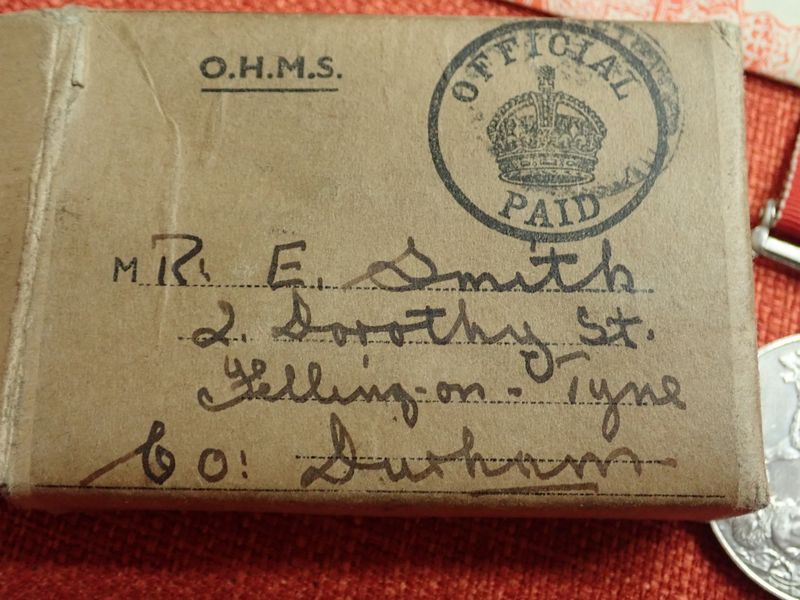 O.H.M.S.
OFFICIAL
PAID
MR: E. Smith
2. Dorothy St.
Felling-on-Tyne
Co: Durham